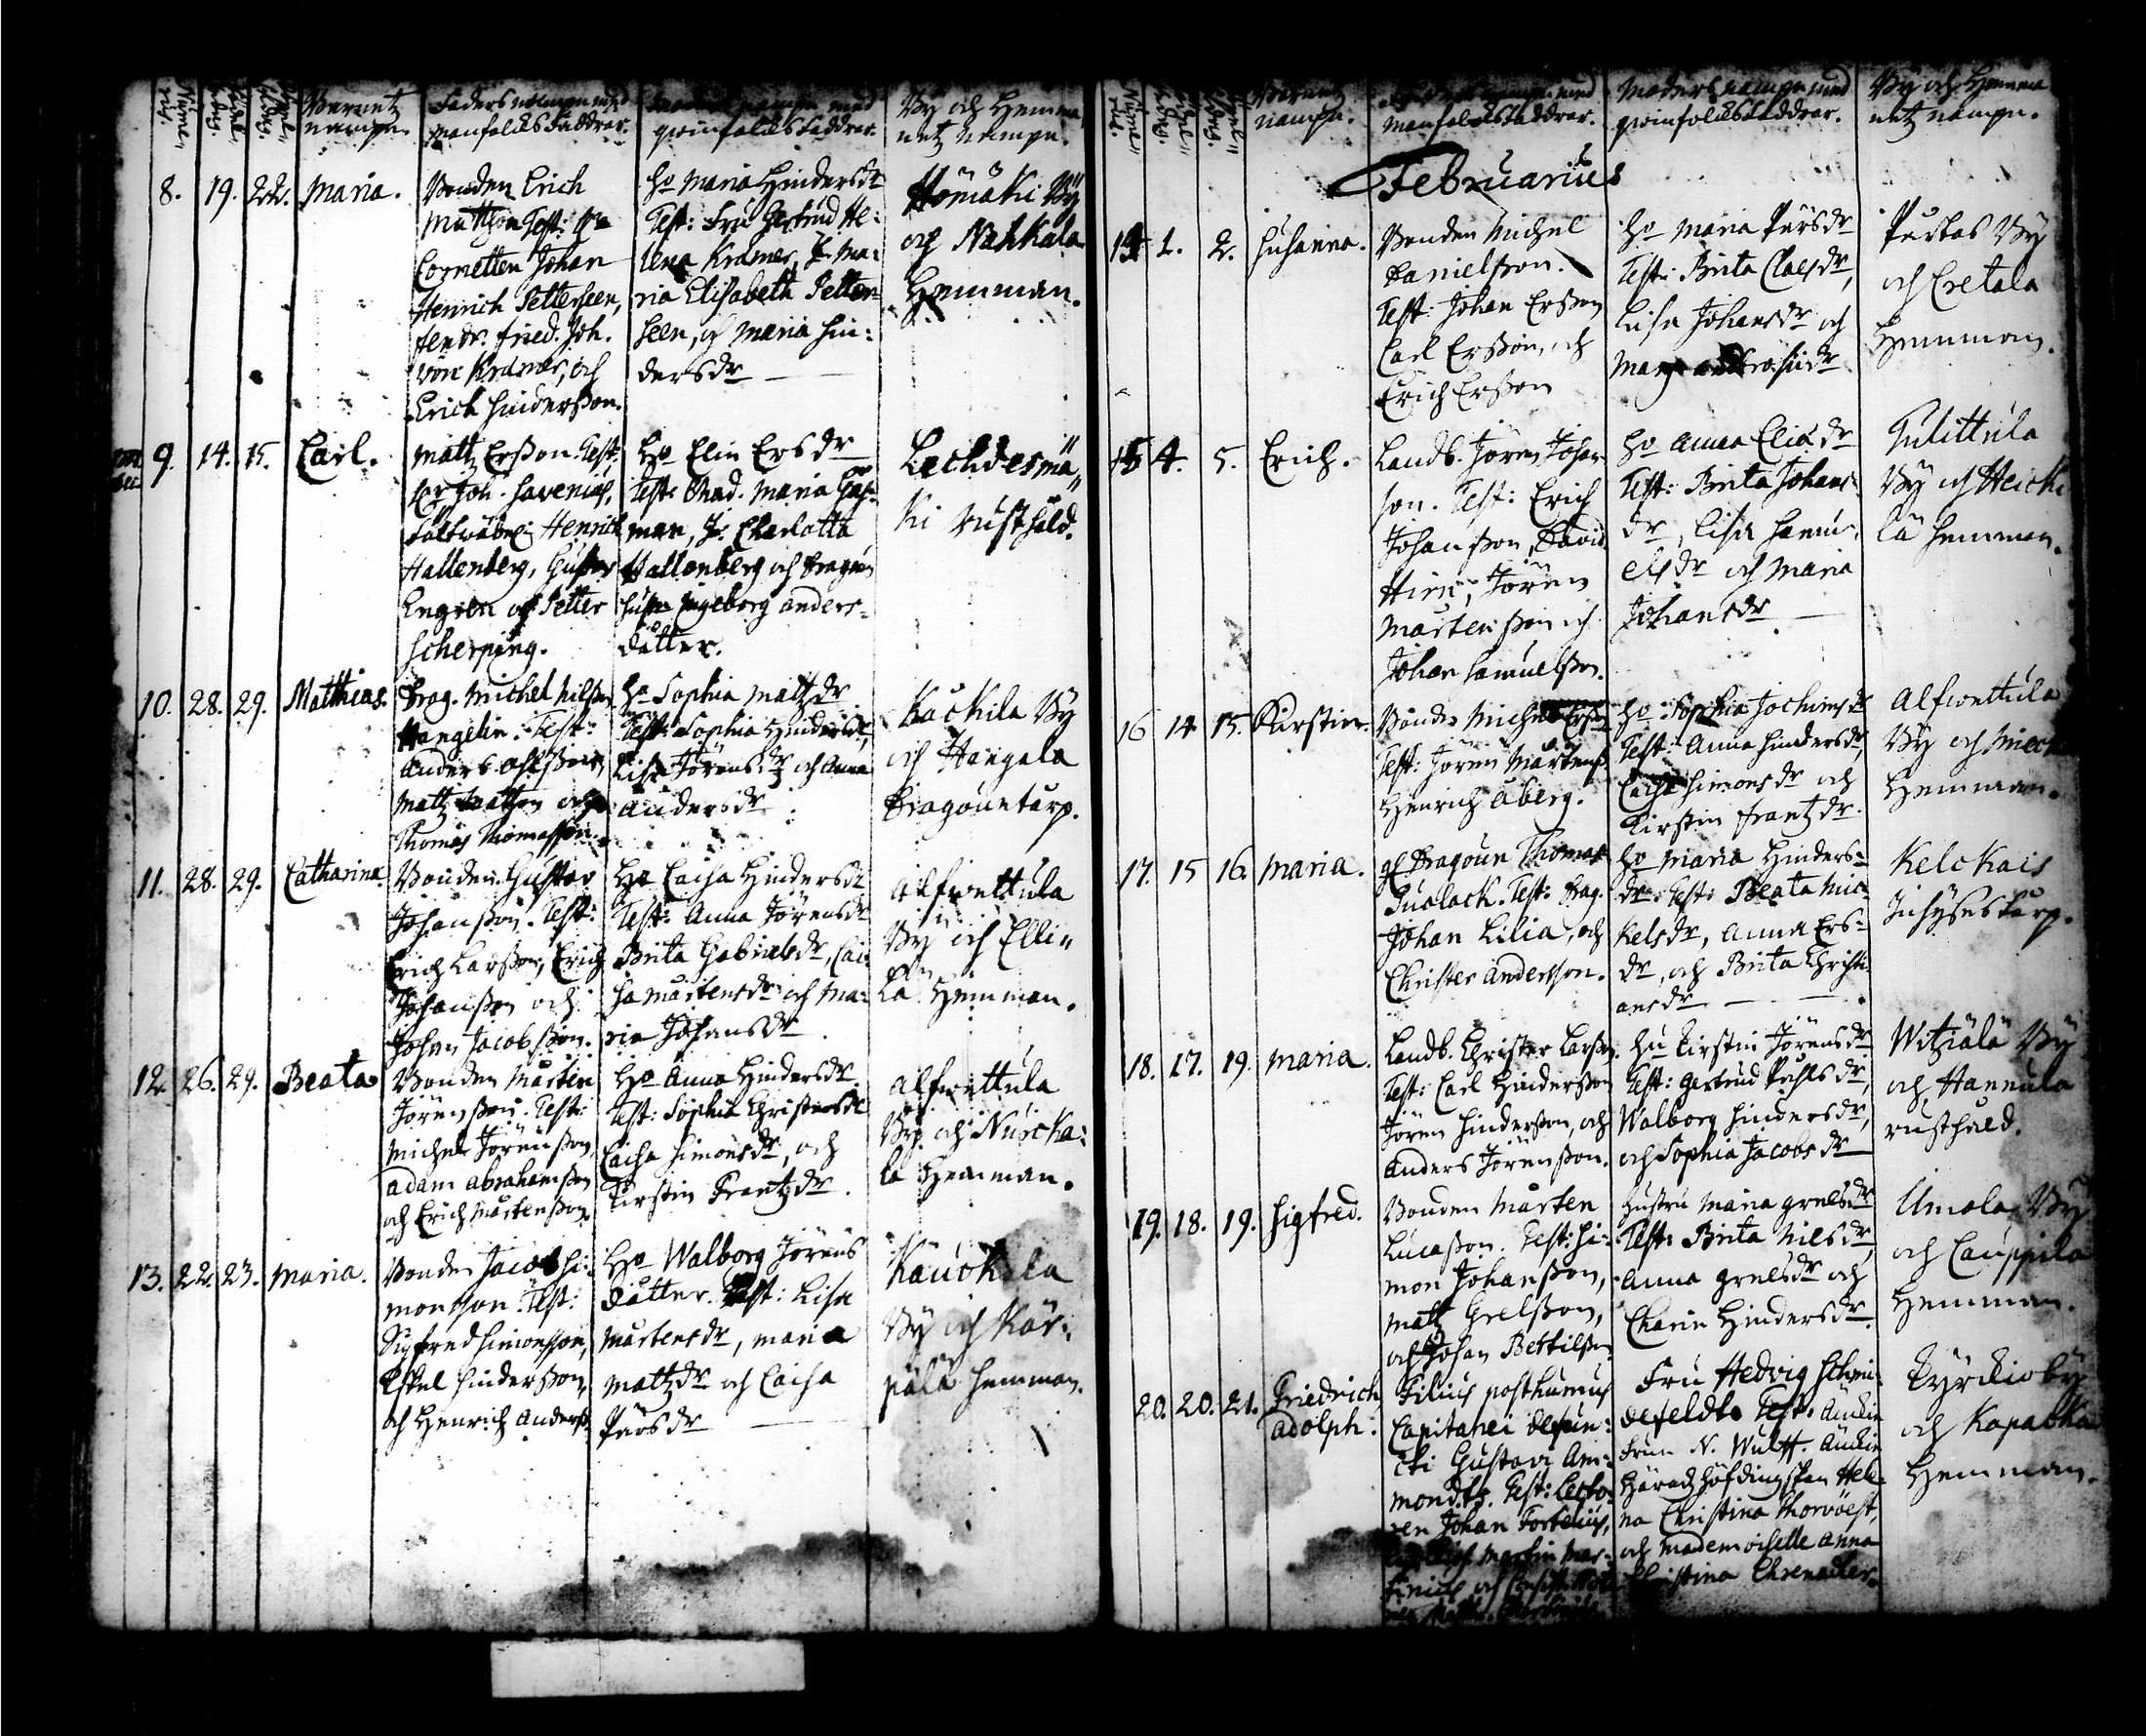 Barnetz
nampn.
Faders nampn med
manfolcks faddrar.
qwinfolcks faddrar.
By och Hemma
netz nampn.
8. 19. 22. Maria.
Bonden Erich
Mattzson Test:
Cornetten Johan
Henrich Petterseen,
fried. Joh.
von Kramer, och
Erich Hindersson.
Ho Maria Hindersdr
Test: Fru Gertrud He:
lena Kramer, J. Ma:
ria Elisabeth Petter
seen, och Maria Hin:
dersdr
Hömäki By
och Nahkala
Hemman.
9. 14. 15. Carl.
Matz Ersson. Test:
Joh. Savenius,
Henrich
Hallenberg, Gustav
Engren och Petter
Scherping.
Ho Elin Ersdr
Test: Mad. Maria
man, J. Charlotta
Hallenberg och Dragoun
hustr Ingeborg anders-
dåtter.
Lechdesmä
ki rusthåld.
10. 28. 29. Matthias.
Drag. Michel Nilsson
Hangelin. Test:
Anders
Matz Mattzon och
Thomas Thomasson.
Ho Sophia Mattzdr
Test: Sophia Hindersdr,
Lisa Jörensdr och Anna
Andersdr
Kackila By
och Hangala
Dragountorp.
11. 28. 29. Catharina.
Bonden Gustav
Johansson. Test:
Erich Larsson, Erich
Johansson och
Johan Jacobsson.
Ho Caisa Hindersdr
Test: Anna Jörensdr
Brita Gabrielsdr, Cai
sa Mårtensdr och Ma:
ria Johansdr
Alfwettula
By och Elli
lä Hemman.
12. 26. 29. Beata
Bonden Mårten
Jörensson. Test:
Michel Jörensson,
Adam Abrahamsson
och Erich Mårtensson.
Ho Anna Hindersdr.
Test: Sophia Christersdr
Caisa Simonsdr, och
Kirstin Frantzdr.
Alfwettula
By och Nuscka:
la Hemman.
13. 22. 23. Maria.
Bonden Jacob Si:
monsson. Test:
Sigfred Simonsson,
Eskel Hindersson,
och Henrich Anderss
Ho Walborg Jörens
dåtter. Test: Lisa
Mårtensdr, Maria
Mattzdr och Caisa
Pärsdr
Kauckola
By och Kär:
pälä Hemman.
nampn.
manfolcks faddrar.
Moders nampn med
qwinfolcks faddrar.
By och Hemma
netz nampn.
Februarius
14 1. 2. Susanna.
Bonden Michel
Danielsson.
Test: Johan Ersson
Carl Ersson, och
Erich Ersson
Ho Maria Pärsdr
Test: Brita Claesdr,
Lisa Johansdr och
By
och Eretala
Hemman.
15 4. 5. Erich.
Landb. Jören Johan
son. Test: Erich
Johansson, David
Jören
Mårtensson och
Johan Samuelsson.
Ho Anna Eliædr
Test: Brita Johans
dr, Lisa Samu
elsdr och Maria
Johansdr
Tulittula
By och Heicki
lä Hemman.
16 14 15. Kirstin.
Bonden Michel Ersson
Test: Jören Mårtenss.
Henrich Åberg.
Ho Sophia Jochimsdr
Test: Anna Hindersdr,
Caisa Simonsdr och
Kirstin Frantzdr.
Alfwettula
By och
Hemman.
17. 15 16. Maria.
gl Dragoun Thomas
Test: Drag.
Johan Lilia, och
Christer Andersson.
Ho Maria Hinders-
dr. Test: Beata Mic-
kelsdr, Anna Ers-
dr, och Brita Christi
ansdr
Kelckais
Inhyses torp.
18. 17. 19. Maria.
Landb. Christer Larsson.
Test: Carl Hindersson
Jören Hindersson, och
Anders Jörensson.
Hu Kirstin Jörensdr
Test: Gertrud Påhlsdr,
Walborg Hindersdr,
och Sophia Jacobsdr
Witziälä By
och Hannula
rusthåld.
19. 18. 19. Sigfred.
Bonden Mårten
Lucasson. Test: Si:
mon Johansson,
Matz Grelsson,
och Johan Bertilsson
Hustru Maria Grelsdr
Test: Brita Nilsdr,
Anna Grelsdr och
Charin Hindersdr.
Umola By
och Cauppila
Hemman.
20. 20. 21. Friedrich
Adolph.
Filius posthumus
Capitanei defun:
cti Gustavi Am:
mondt. Test: Lecto:
ren Johan Fortelius,
Martin Mar:
tinius och
Fru Hedvig Schwin:
defeldt. Test: Änckie
Frun N. Wulff. Änckie
Häradzhöfdingskan Hele-
na Christina Thorwöest,
och Mademoiselle Anna
Christina Ehrenacker.
Kyrckioby
och Kapacka
Hemman.